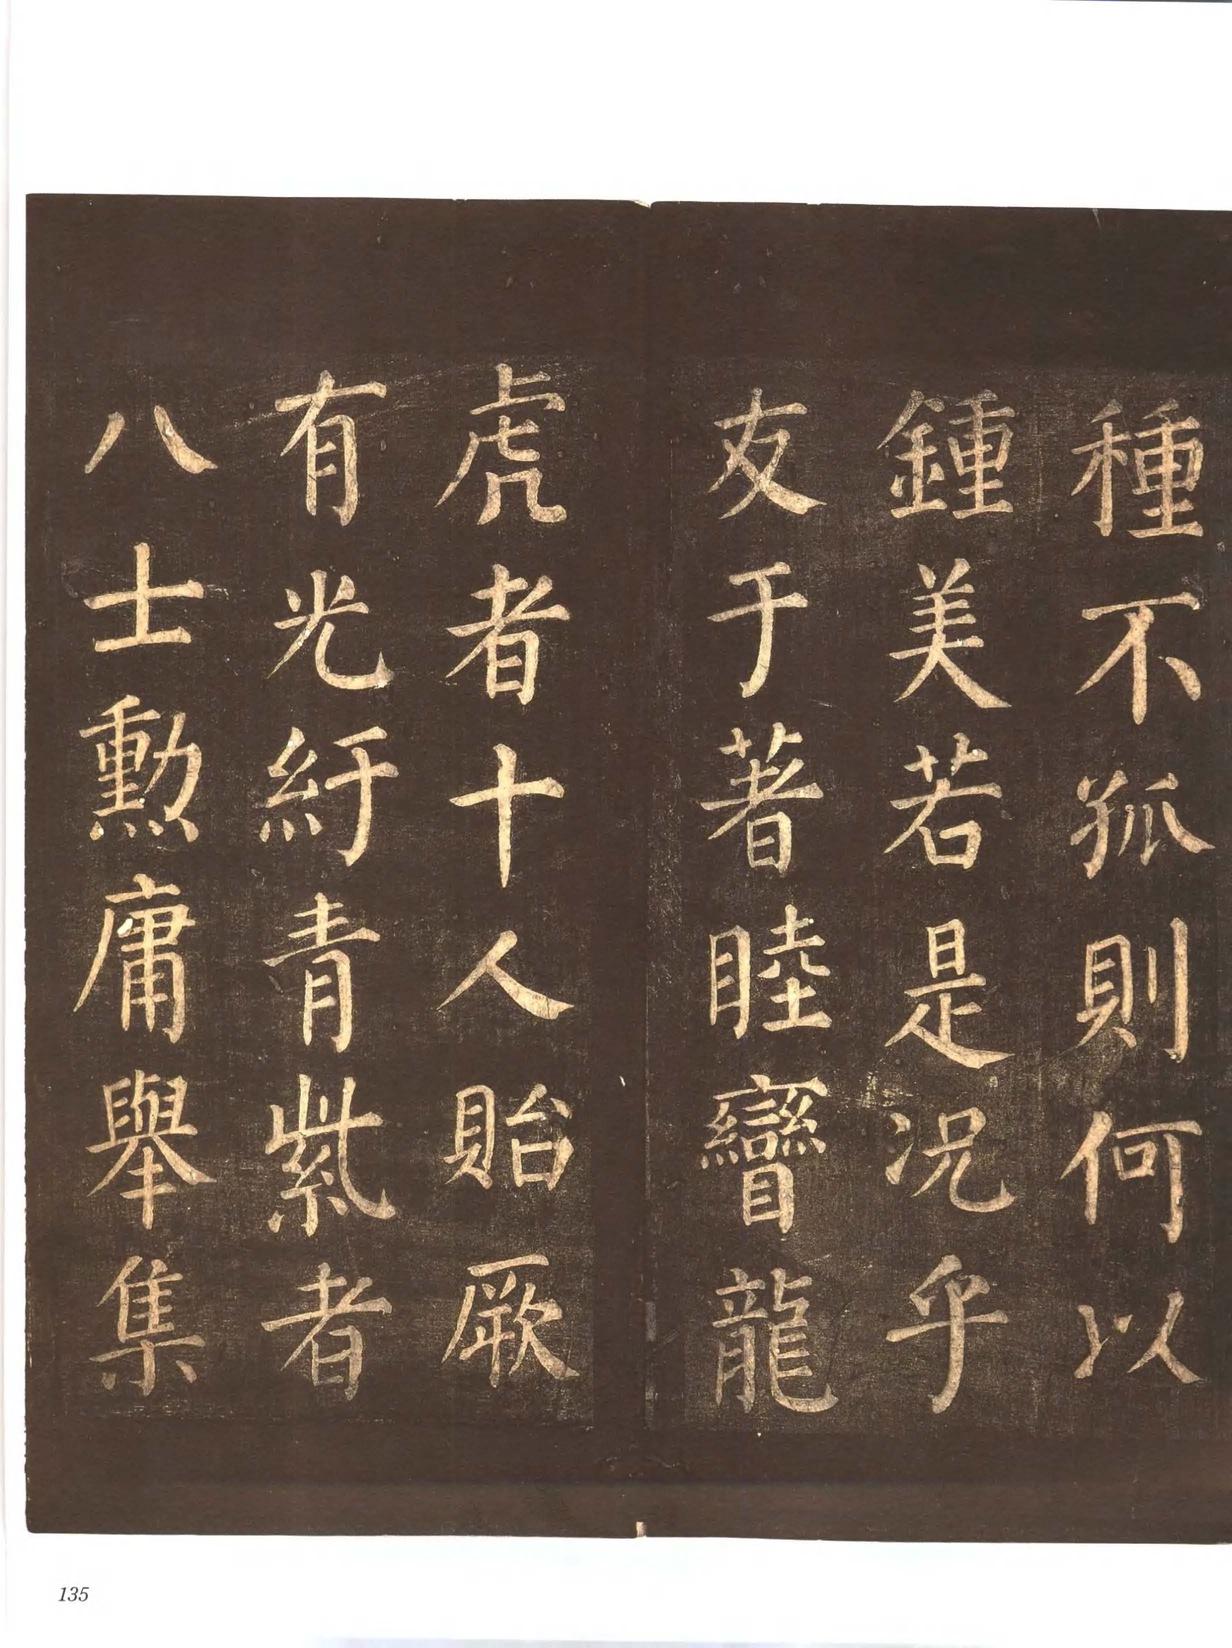 種不孤則何以
鍾美若是況乎
友于著睦𥌓龍
虎者十人貽厥
有光紆青紫者
八士勲庸舉集
135